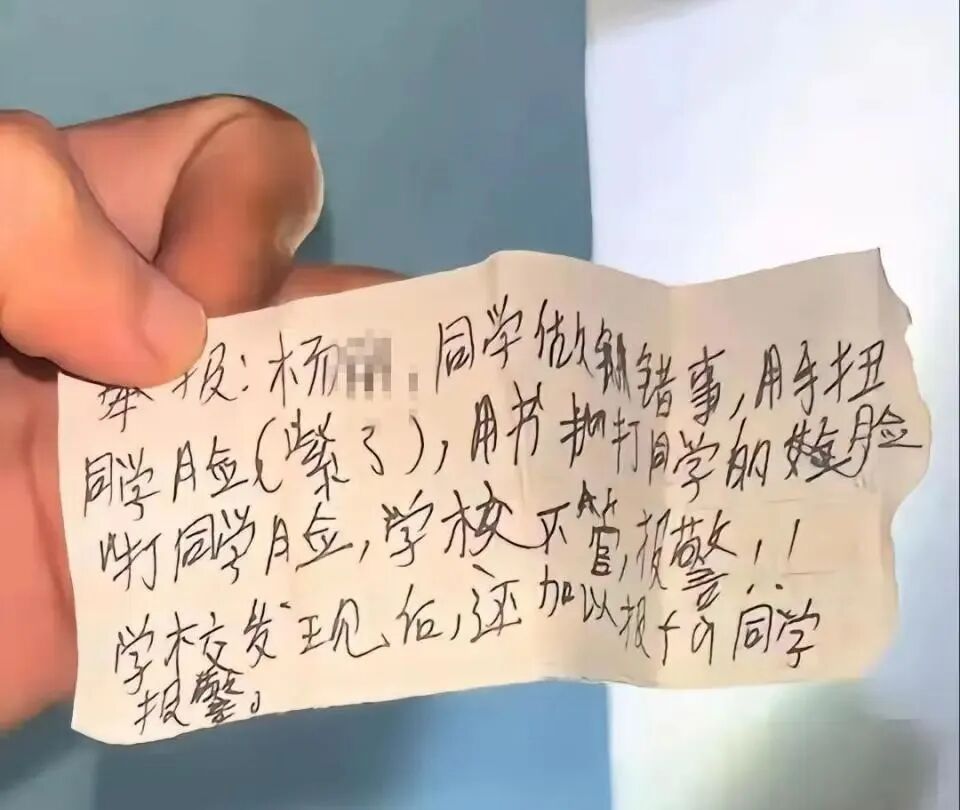 举报：杨 同学做错事，用手扭
同学脸（紫了），用书抽打同学的脸
咋打同学脸，学校不管，报警！！
学校发现后，还加以报 同学
报警。